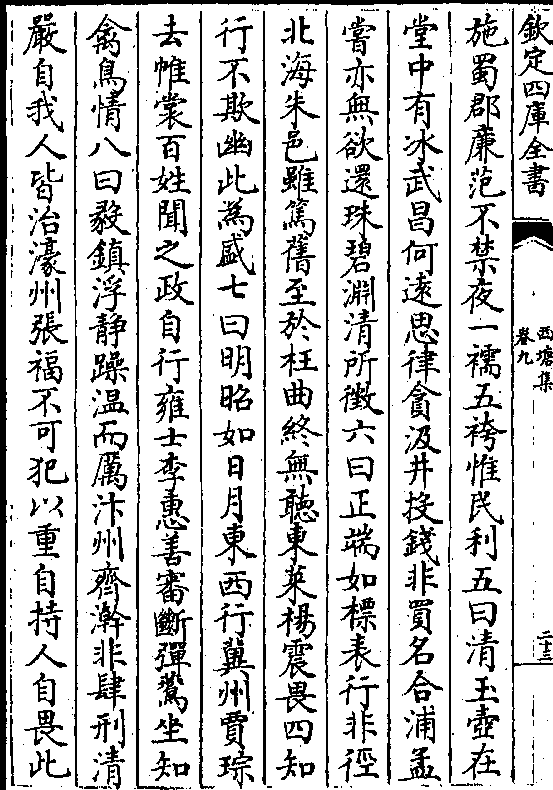 欽定四庫全書
西塘集
卷九
二十三
施蜀郡廉范不禁夜一襦五袴惟民利五曰清玉壺在
堂中有冰武昌何遠思律貪汲井投錢非買名合浦孟
嘗亦無欲還珠碧淵清所徴六曰正端如標表行非徑
北海朱邑雖篤舊至於枉曲終無聽東萊楊震畏四知
行不欺幽此為盛七曰明昭如日月東西行冀州賈琮
去帷裳百姓聞之政自行雍士李惠善審斷彈鴛坐知
禽鳥情八曰毅鎮浮靜躁温而厲汴州齊澣非肆刑清
嚴自我人皆治濠州張福不可犯以重自持人自畏此